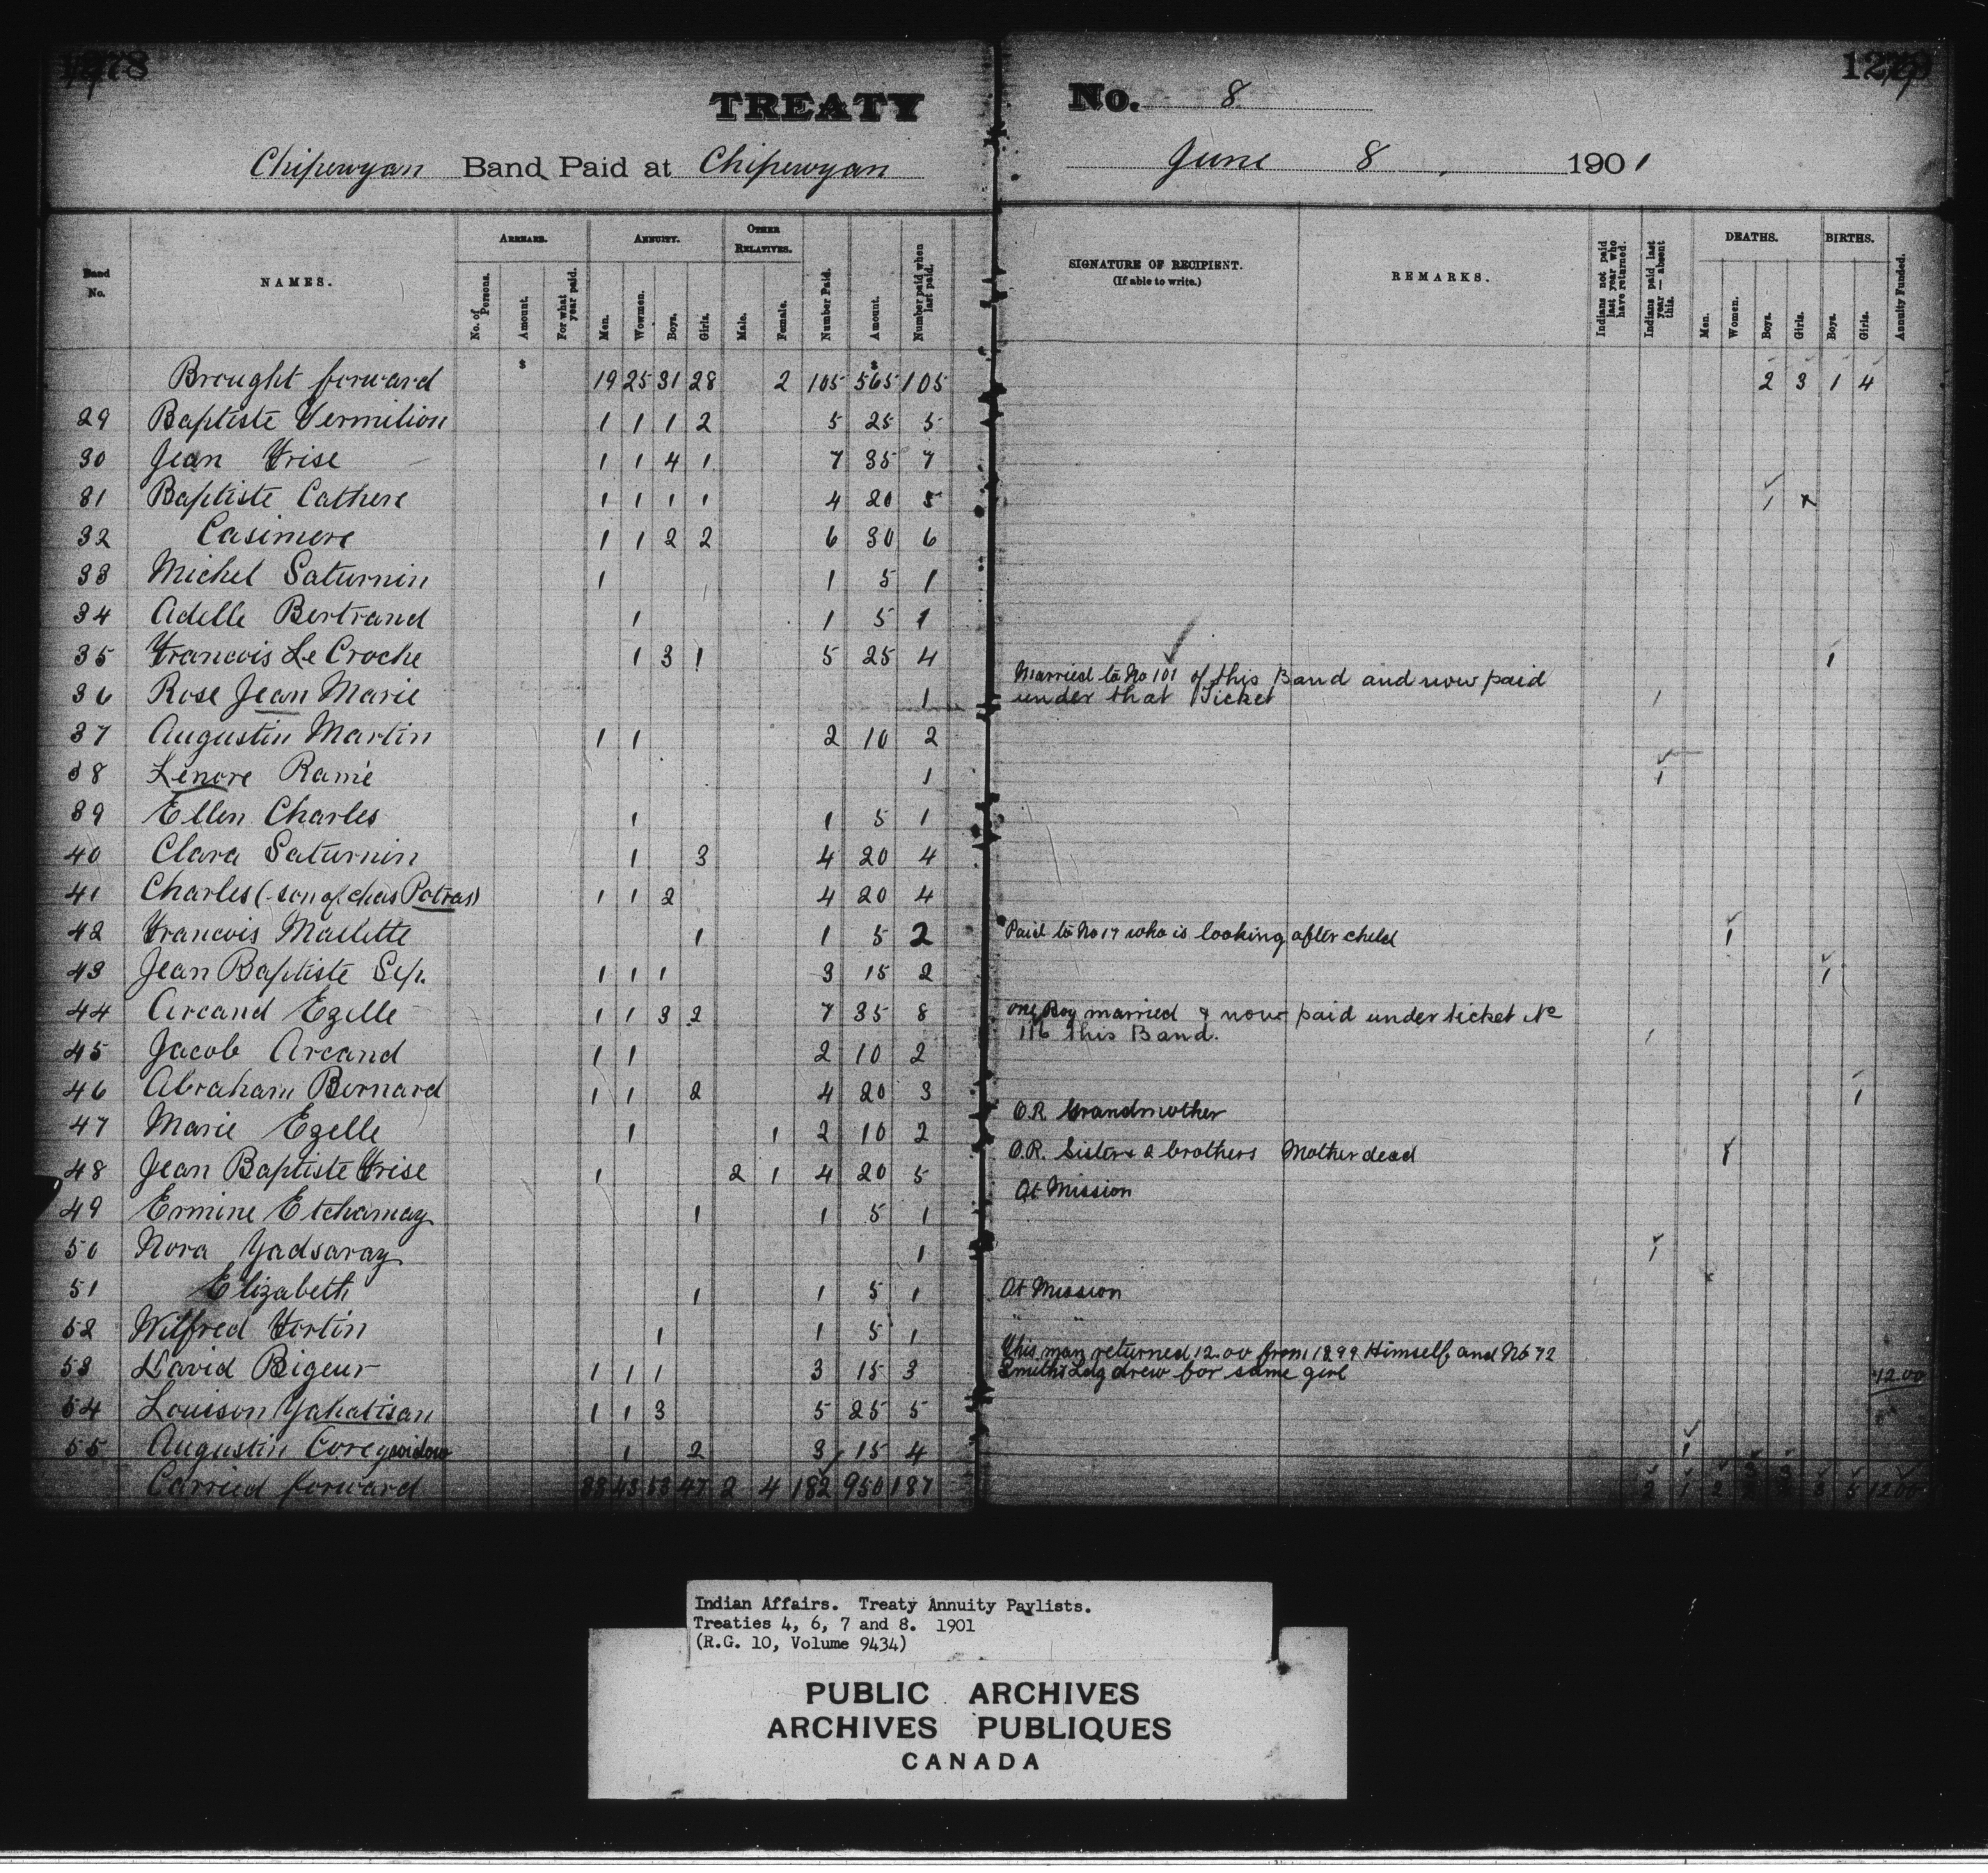 1278
TREATY No. 8
Chipewyan Band Paid at Chipewyan June 8, 1901
Band No. NAMES. ARREARS. No. of Persons. Amount. For what year paid. ANNUITY. Men. Wowmen. Boys. Girls. OTHER RELATIVES. Male. Female. Number Paid. Amount. Number paid when last paid. SIGNATURE OF RECIPIENT. (If able to write.) REMARKS. Indians not paid last year who have returned. Indians paid last year — absent this. DEATHS. Men. Women. Boys. Girls. BIRTHS. Boys. Girls. Annuity Funded.
Brought forward $ 19 25 31 28 2 105 $ 565 105 2 3 1 4
29 Baptiste Vermilion 1 1 1 2 5 25 5
30 Jean Frise 1 1 4 1 7 35 7
31 Baptiste Cathere 1 1 1 1 4 20 5 1
32 Casimere 1 1 2 2 6 30 6
33 Michel Saturnin 1 1 5 1
34 Adelle Bertrand 1 1 5 1
35 Francois Le Croche 1 3 1 5 25 4 1
36 Rose Jean Marie 1 Married to No 101 of this Band and now paid
under that Ticket 1
37 Augustin Martin 1 1 2 10 2
38 Lenore Ramie 1 1
39 Ellen Charles 1 1 5 1
40 Clara Saturnin 1 3 4 20 4
41 Charles (son of chas Potras) 1 1 2 4 20 4
42 Francois Mallette 1 1 5 2 Paid to No 17 who is looking after child 1
43 Jean Baptiste Sep. 1 1 1 3 15 2 1
44 Arcand Ezelle 1 1 3 2 7 35 8 One Boy married & now paid under ticket No
116 this Band. 1
45 Jacob Arcand 1 1 2 10 2
46 Abraham Bernard 1 1 2 4 20 3 1
47 Marie Ezelle 1 1 2 10 2 O.R. Grandmother
48 Jean Baptiste Frise 1 2 1 4 20 5 O.R. Sister & 2 brothers Mother dead 1
49 Ermine Etchamay 1 1 5 1 At Mission
50 Nora Yadsaray 1 1
51 Elizabeth 1 1 5 1 At Mission
52 Wilfred Fortin 1 1 5 1 " "
53 David Bigeur 1 1 1 3 15 3 This man returned 12.00 from 1899 Himself and No 72
Smith's Ldg drew for same girl 12.00
54 Louison Yahatisan 1 1 3 5 25 5
55 Augustin Corey widow 1 2 3 15 4 1
Carried forward 33 43 53 47 2 4 182 950 187 2 1 2 3 5 12 00
Indian Affairs. Treaty Annuity Paylists.
Treaties 4, 6, 7 and 8. 1901
(R.G. 10, Volume 9434)
PUBLIC ARCHIVES
ARCHIVES PUBLIQUES
CANADA